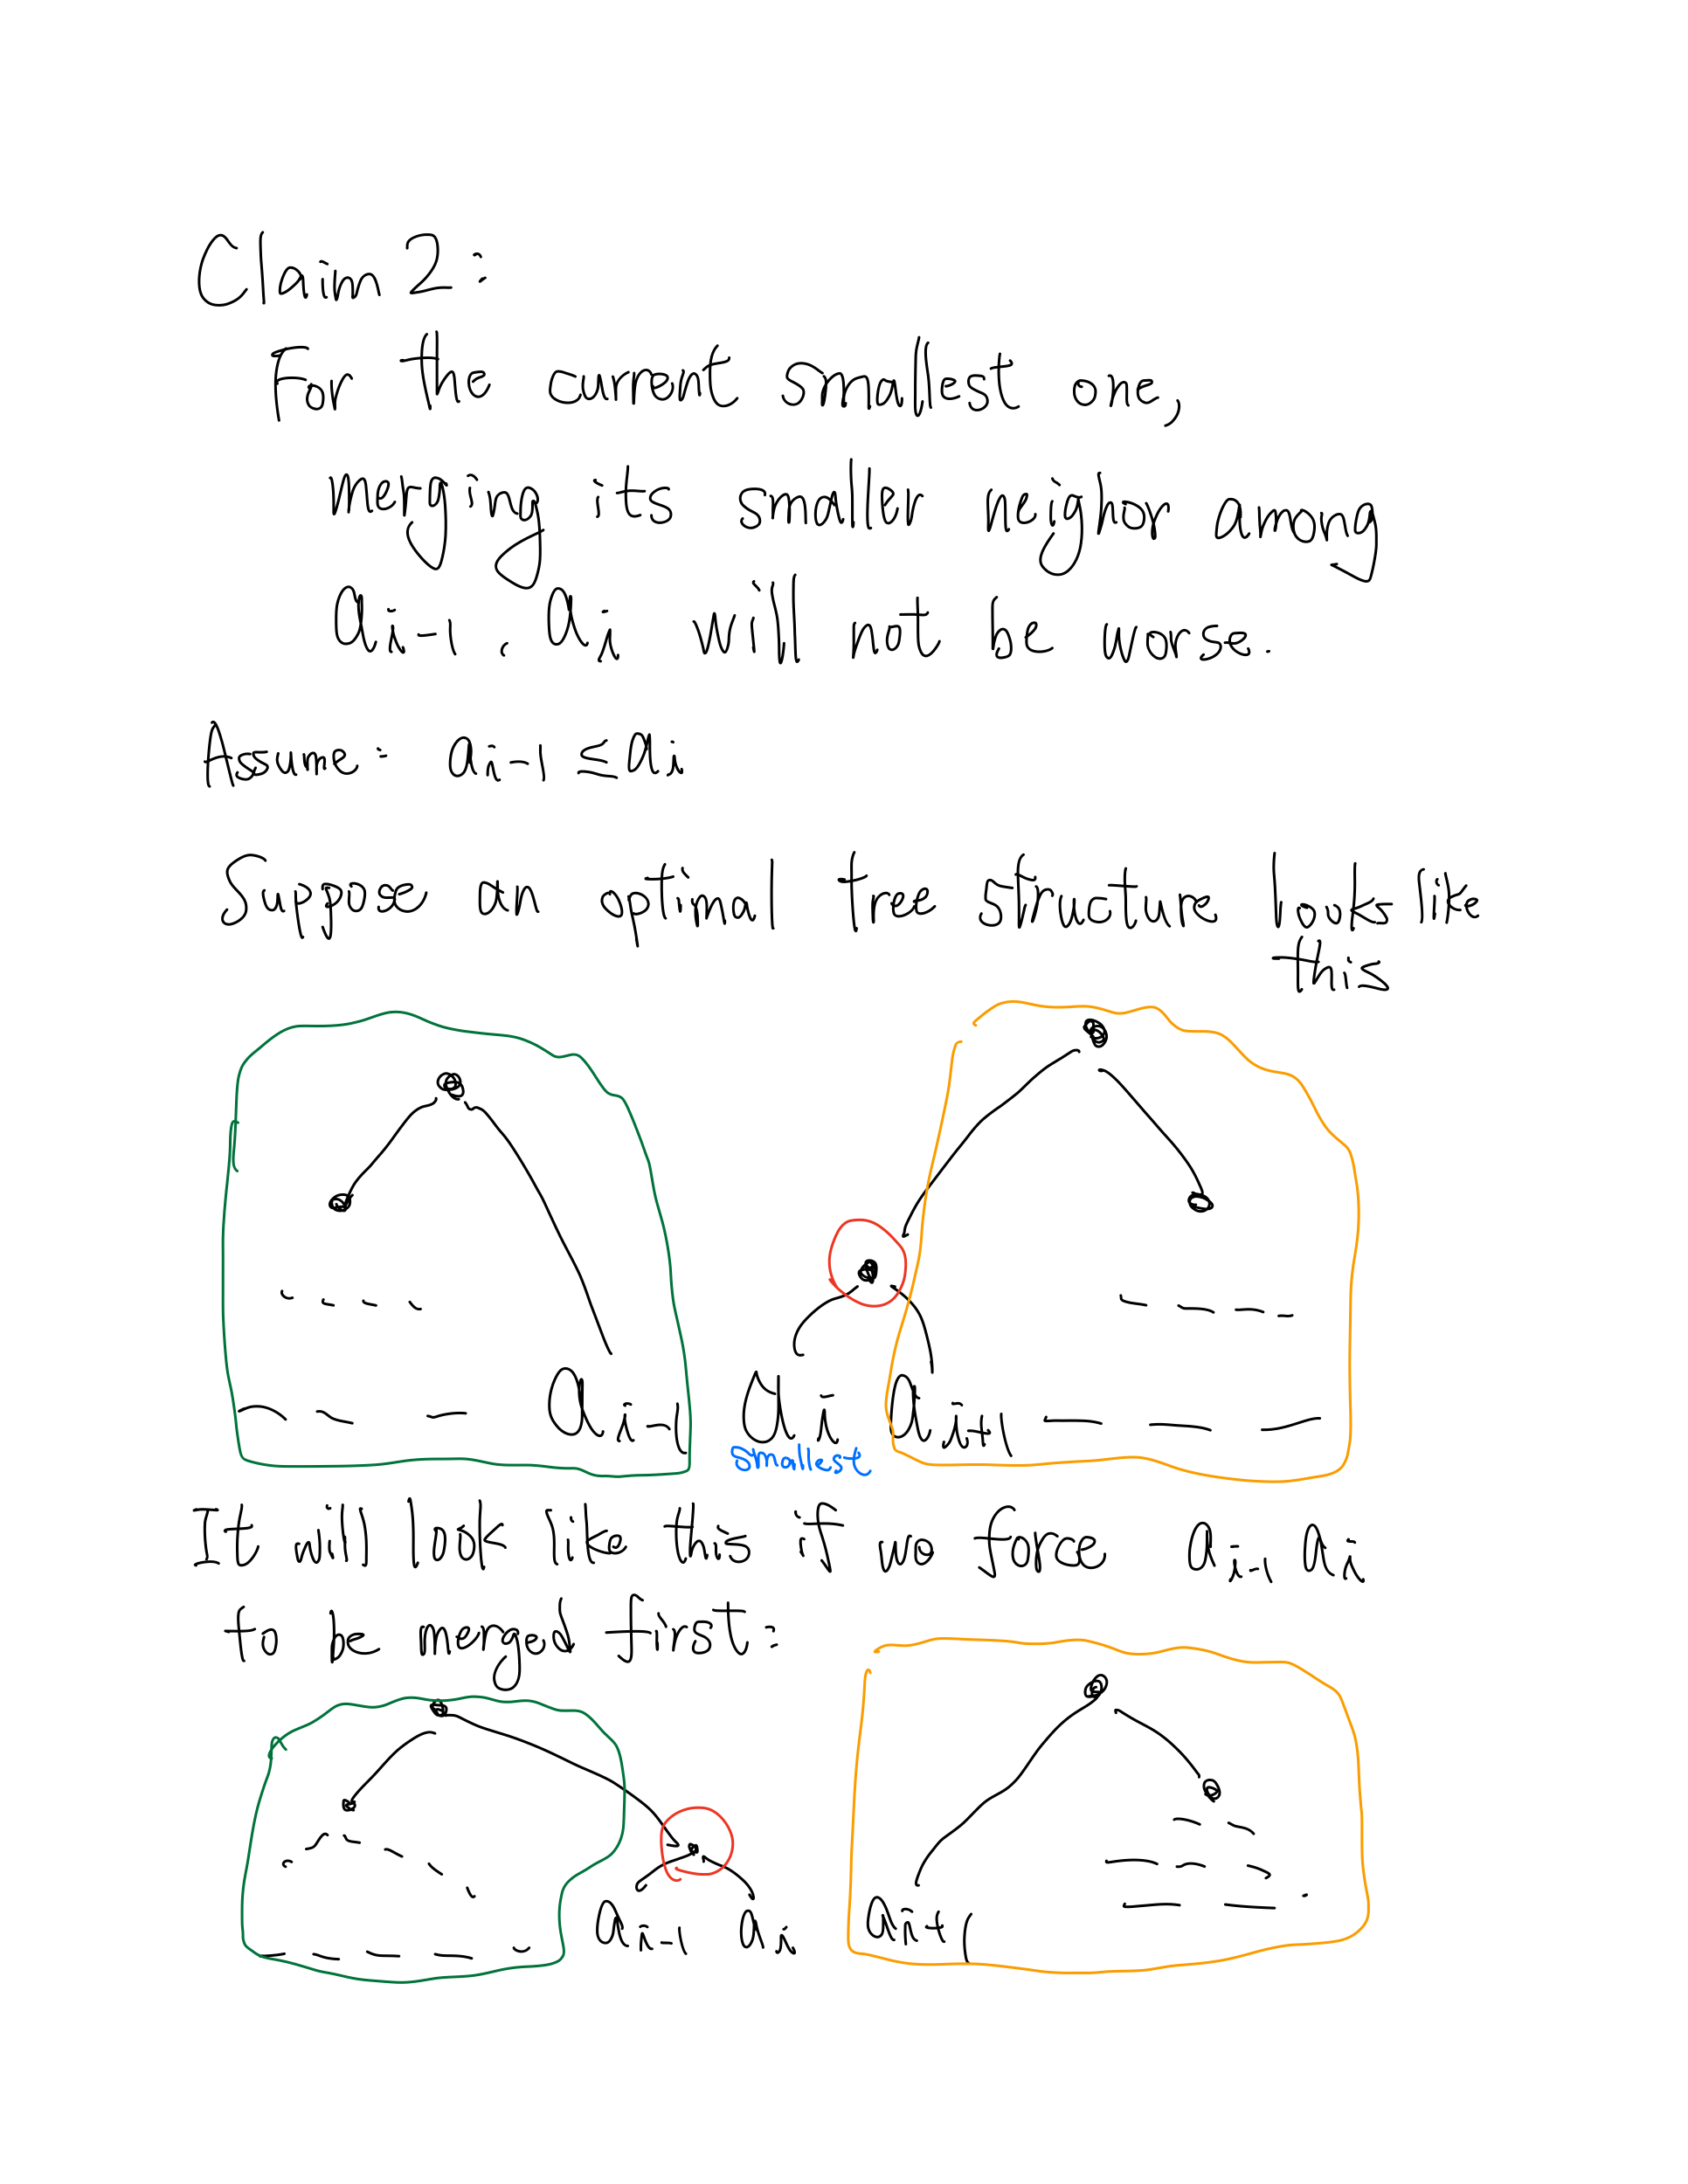 Claim 2:
For the current smallest one,
merging its smaller neighor among
ai-1, ai will not be worse.
Assume: ai-1 ≤ ai
Suppose an optimal tree structure looks like
this
ai-1 ai ai+1
smallest
It will look like this if we force ai-1 ai
to be merged first:
ai-1 ai ai+1